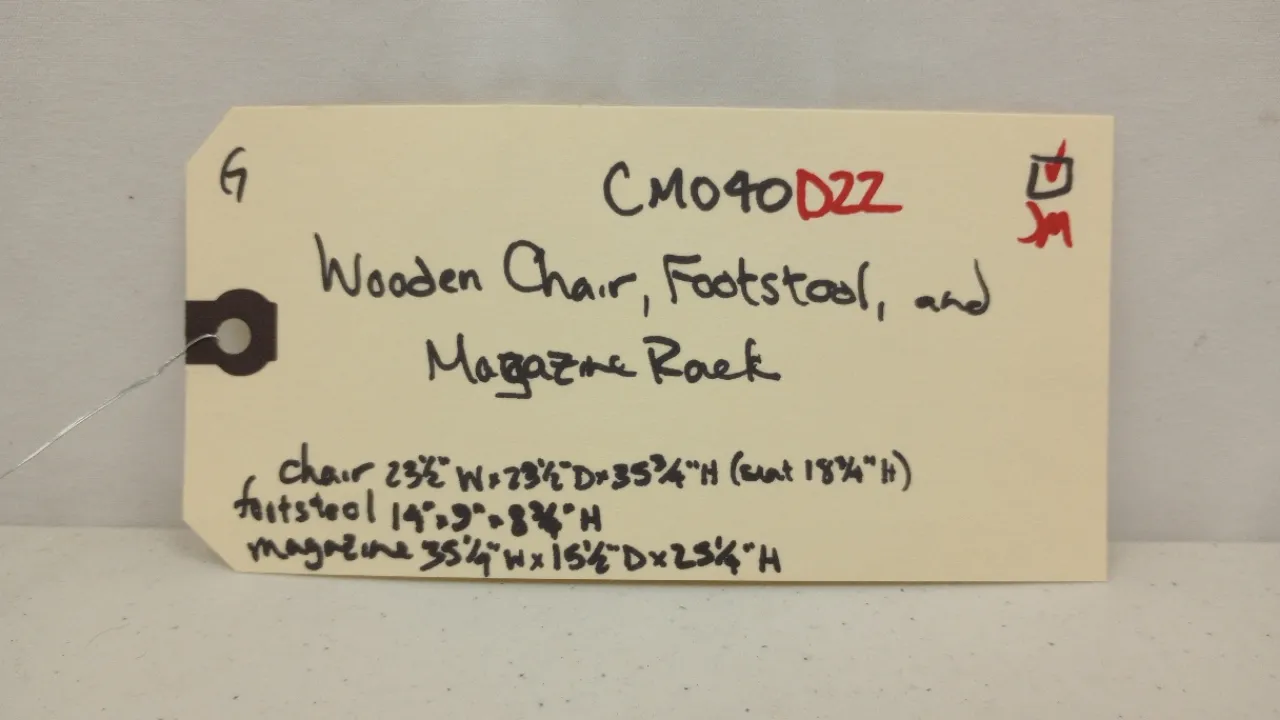 G
CM040D22
JM
Wooden Chair, Footstool, and
Magazine Rack
chair 23½" W x 23½" D x 35¾" H (seat 18¾" H)
footstool 14" x 9" x 8¾" H
magazine 35¼" W x 15½" D x 25¼" H